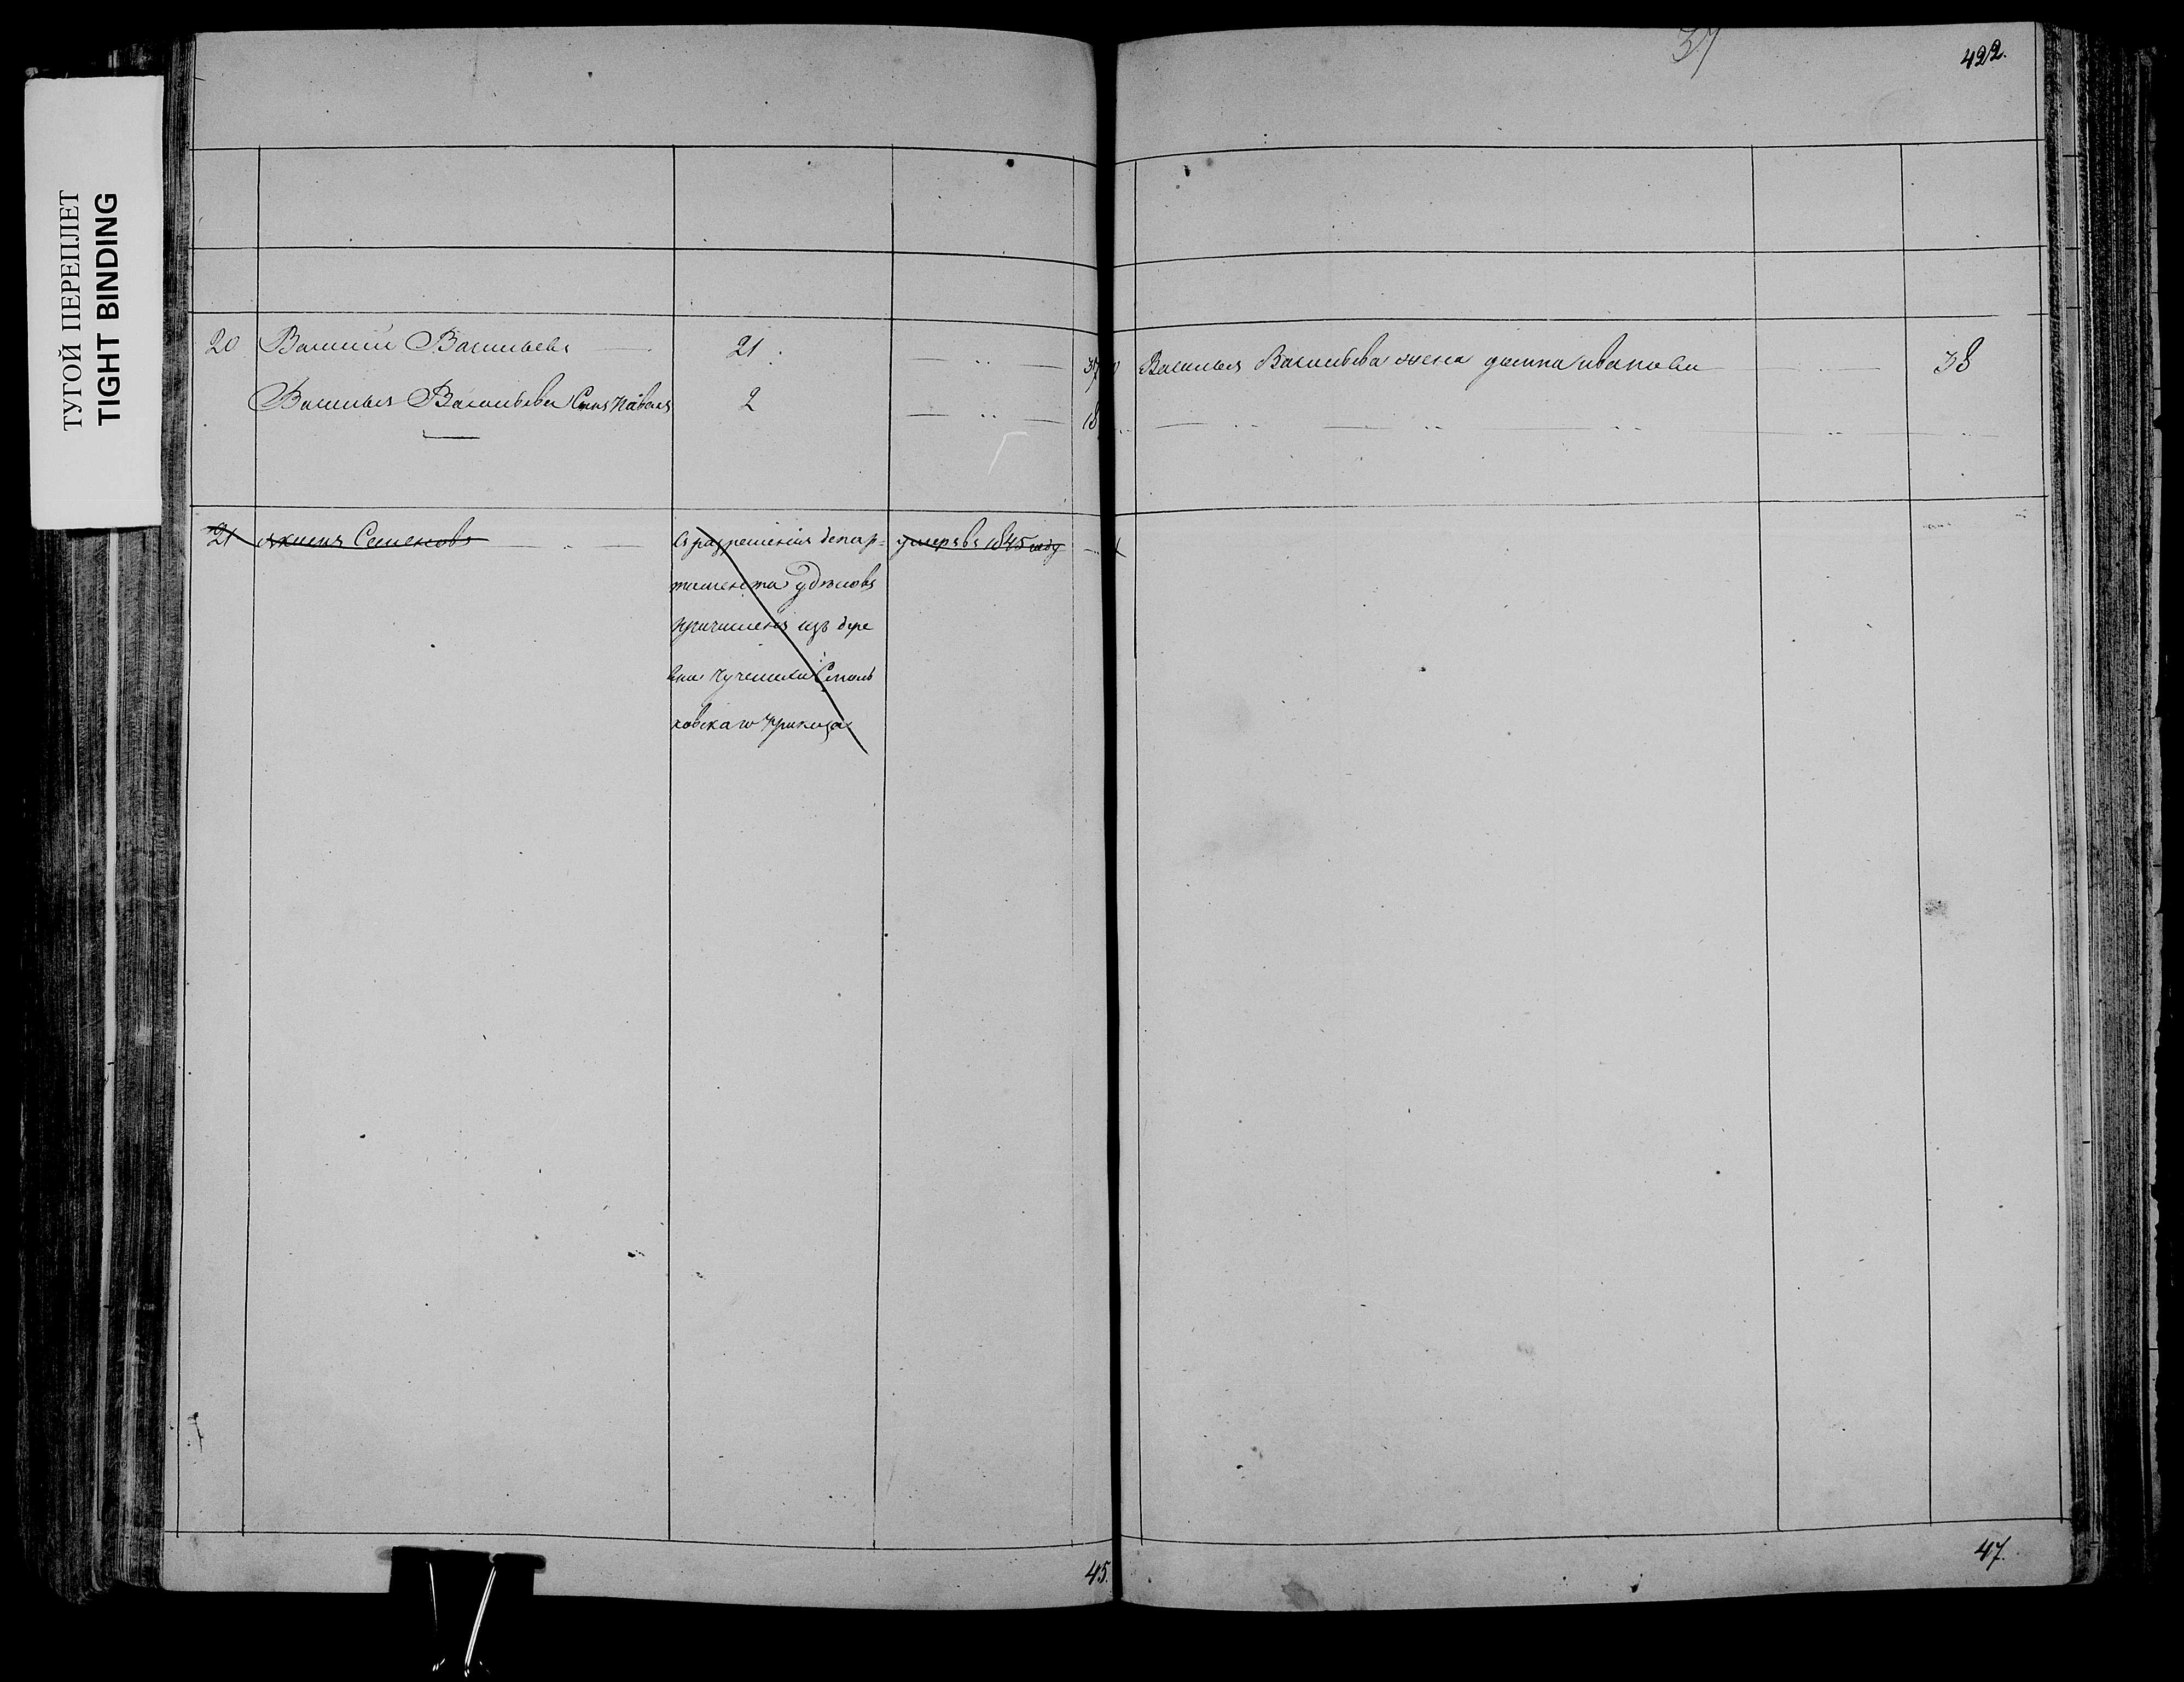 ТУГОЙ ПЕРЕПЛЕТ
TIGHT BINDING
37
422.
20 Василий Васильевъ 21. 37
Василья Васильева Сынъ Павелъ 2 18
Василья Васильева жена Домна иванова 38
21 Якимъ Семеновъ
съ разрешенія депар=
тамента уделовъ
причисленъ изъ дере
вни
ковскаго приказа
умеръ въ 1845 году
45.
47.